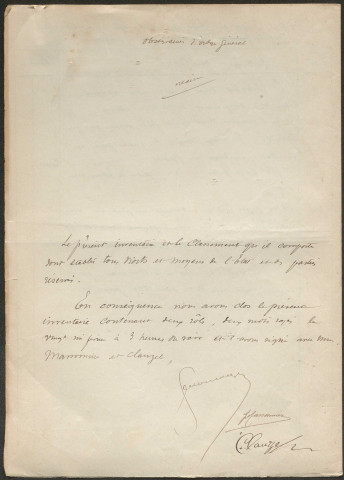 Observations d'ordre général
néant
Le présent inventaire et le Classement qu'il comporte
sont exécutés tous droits et moyens de l'état et des parties
réservés.
En conséquence nous avons clos le présent
inventaire contenant deux rôles, deux mots rayés
à 3 heures du soir et avons signé avec MM
et Clauzel,
C. Clauzel